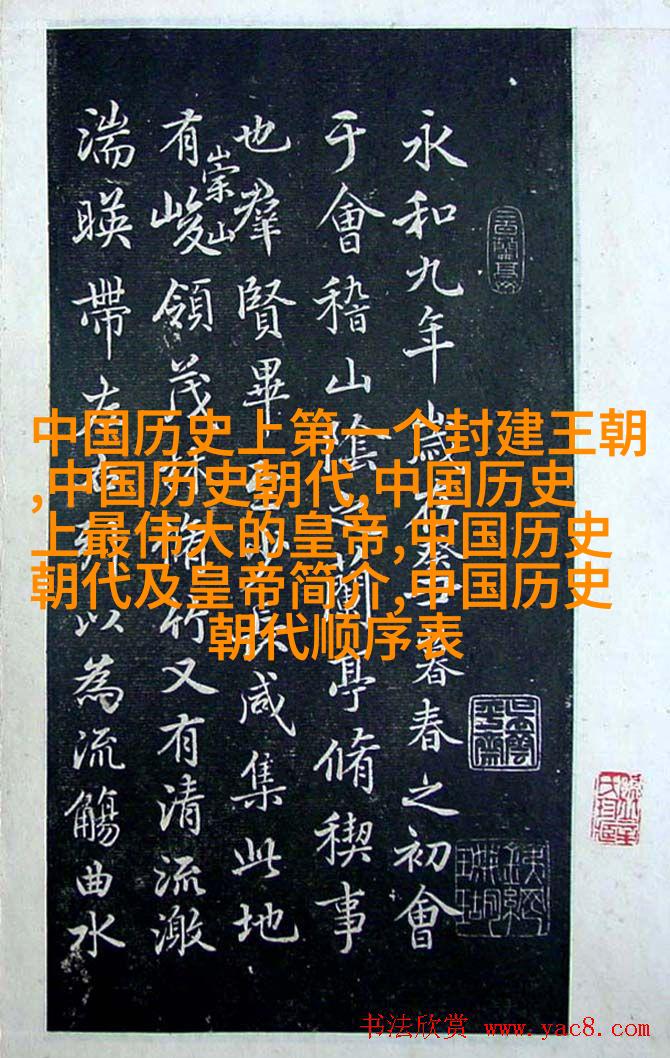 永和九年歲在癸丑暮春之初會
于會稽山陰之蘭亭脩稧事
也羣賢畢至少長咸集此地
有崇山峻領茂林脩竹又有清流激
湍暎帶左右列以為流觴曲水
中国历史上第一个封建王朝
,中国历史朝代,中国历史
上最伟大的皇帝,中国历史
朝代及皇帝简介,中国历史
朝代顺序表
书法欣赏 www.yac8.com